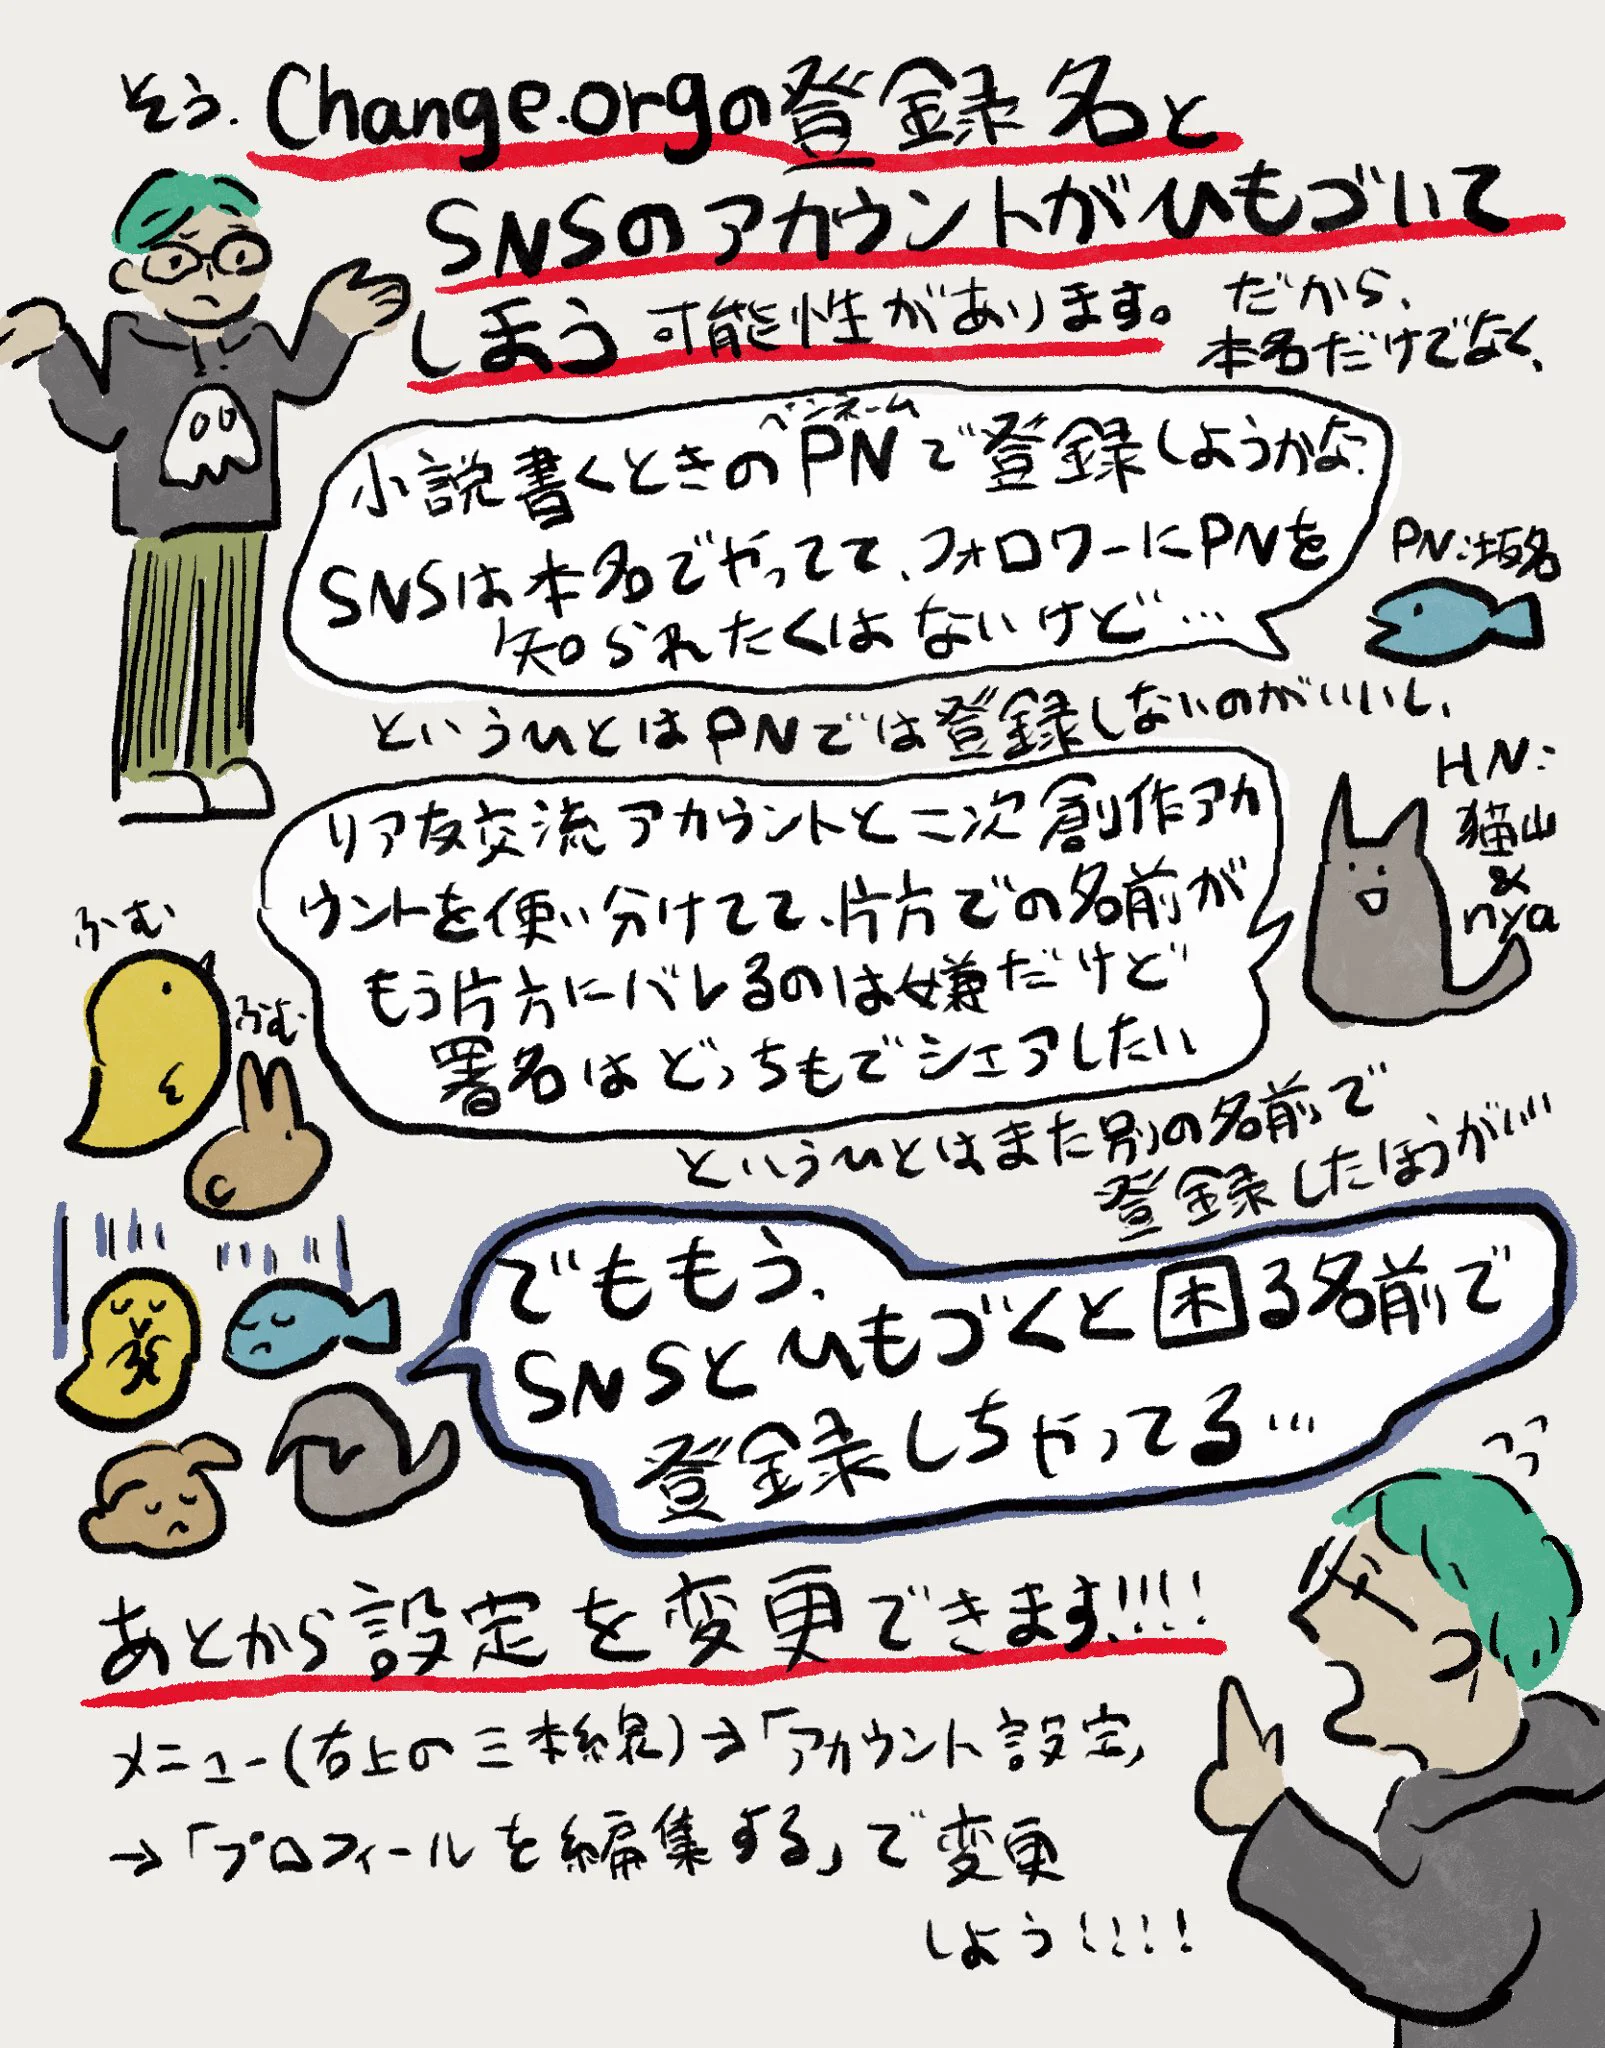 そう、Change.orgの登録名と
SNSのアカウントがひもづいて
しまう可能性があります。
だから、
本名だけでなく、
ペンネーム
小説書くときのPNで登録しようかな。
SNSは本名でやってて、フォロワーにPNを
知られたくはないけど…
PN:坂名
というひとはPNでは登録しないのがいいし、
リア友交流アカウントと二次創作アカ
ウントを使い分けてて、片方での名前が
もう片方にバレるのは嫌だけど
署名はどっちもでシェアしたい
HN:
猫山
&
nya
ふむ
ふむ
というひとはまた別の名前で
登録したほうがいい…
でももう、
SNSとひもづくと困る名前で
登録しちゃってる…
あとから設定を変更できます!!!!
メニュー(右上の三本線)→「アカウント設定」
→「プロフィールを編集する」で変更
しよう!!!!